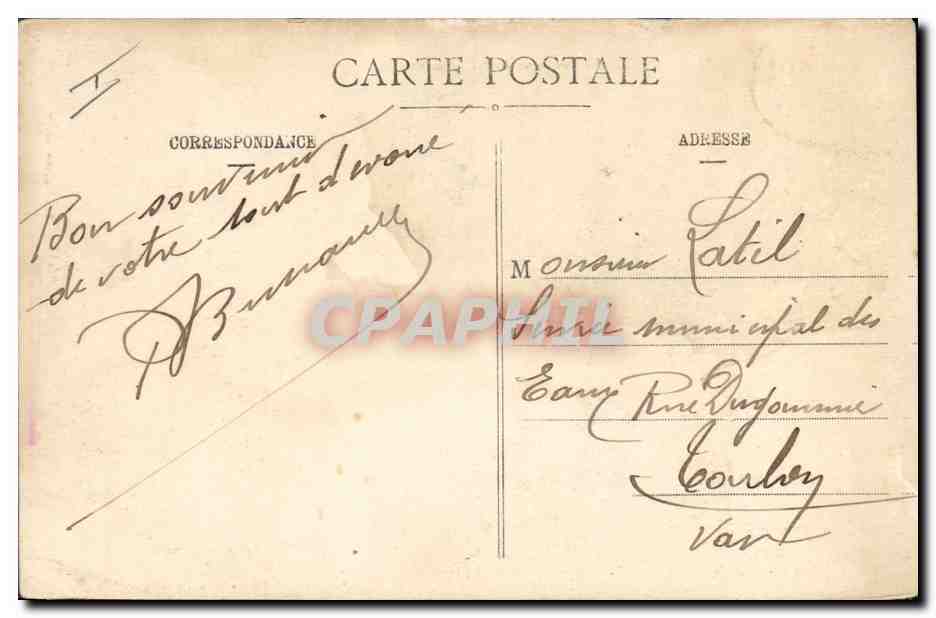 I
CARTE POSTALE
CORRESPONDANCE
Bon souvenir
de votre tout dévoué
ADRESSE
Monsieur Latil
Service municipal des
Eaux Rue Dugommier
Toulon
Var
CPAPHIL